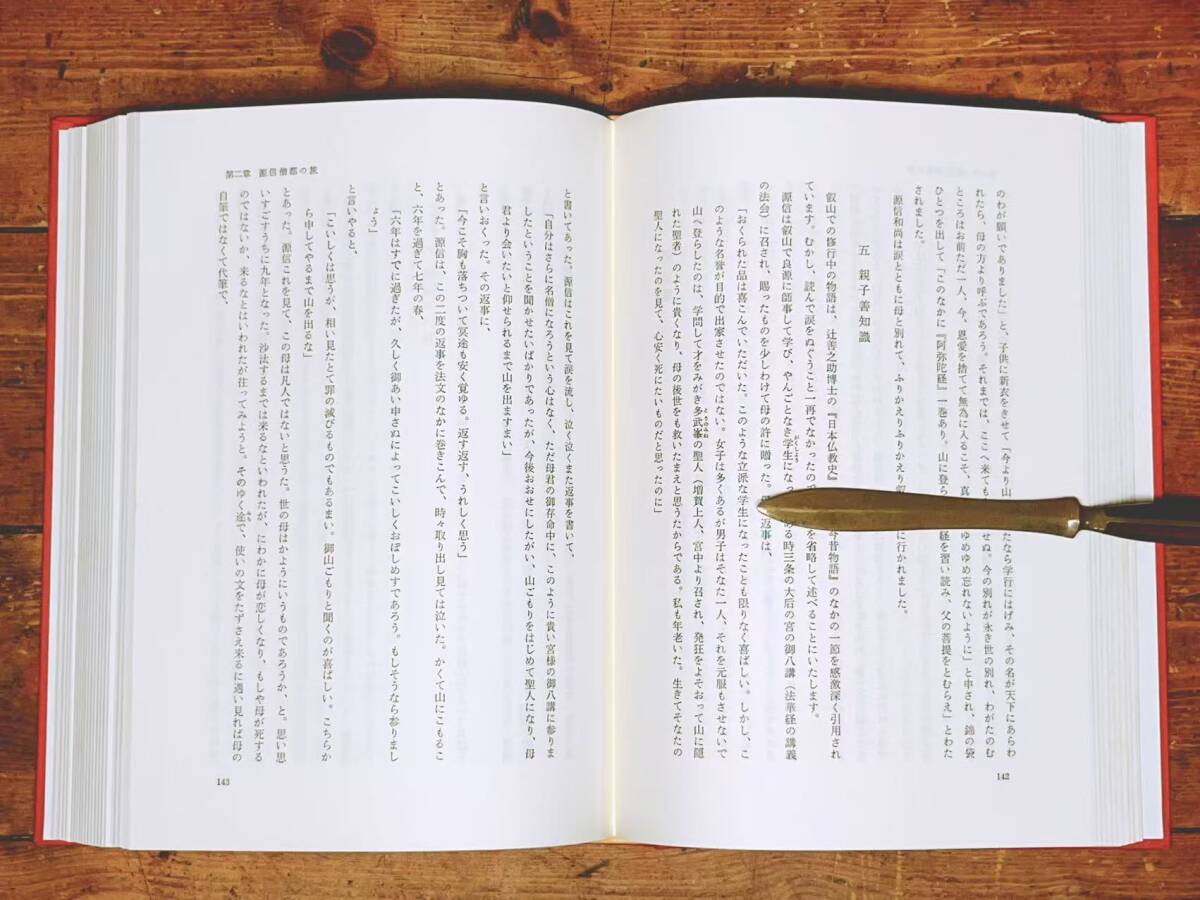 のわが願いでありました」と、子供に新衣をきせて「今より山
たなら学行にはげみ、その名が天下にあらわ
れたら、母の方より呼ぶであろう。それまでは、ここへ来ても
せぬ。今の別れが永き世の別れ、わがたのむ
ところはお前ただ一人、今、恩愛を捨てて無為に入るこそ、真
ゆめゆめ忘れないように」と申され、錦の袋
ひとつを出して「このなかに『阿弥陀経』一巻あり。山に登ら
経を習い読み、父の菩提をとむらえ」とわた
されました。
源信和尚は涙とともに母と別れて、ふりかえりふりかえり叡
に行かれました。
五 親子善知識
叡山での修行中の物語は、辻善之助博士の『日本仏教史』
今昔物語』のなかの一節を感激深く引用され
ています。むかし、読んで涙をぬぐうこと一再でなかったので
を省略して述べることにいたします。
源信は叡山で良源に師事して学び、やんごとなき学生になっ
がくしょう
ある時三条の大后の宮の御八講（法華経の講義
の法会）に召され、賜ったものを少しわけて母の許に贈った。
返事は、
「おくられた品は喜こんでいただいた。このような立派な学生になったことも限りなく喜ばしい。しかし、こ
のような名誉が目的で出家させたのではない。女子は多くあるが男子はそなた一人、それを元服もさせないで
山へ登らしたのは、学問して才をみがき多武峯の聖人（増賀上人、宮中より召され、発狂をよそおって山に隠
とうのみね
れた聖者）のように貴くなり、母の後世をも救いたまえと思うたからである。私も年老いた。生きてそなたの
聖人になったのを見て、心安く死にたいものだと思ったのに」
142
第二章 源信僧都の旅
と書いてあった。源信はこれを見て涙を流し、泣く泣くまた返事を書いて、
「自分はさらに名僧になろうという心はなく、ただ母君の御存命中に、このように貴い宮様の御八講に参りま
したということを聞かせたいばかりであったが、今後おおせにしたがい、山ごもりをはじめて聖人になり、母
君より会いたいと仰せられるまで山を出ますまい」
と言いおくった。その返事に、
「今こそ胸も落ちついて冥途も安く覚ゆる。返す返す、うれしく思う」
とあった。源信は、この二度の返事を法文のなかに巻きこんで、時々取り出し見ては泣いた。かくて山にこもるこ
と、六年を過ぎて七年の春、
「六年はすでに過ぎたが、久しく御あい申さぬによってこいしくおぼしめすであろう。もしそうなら参りまし
ょう」
と言いやると、
「こいしくは思うが、相い見たとて罪の滅びるものでもあるまい。御山ごもりと聞くのが喜ばしい。こちらか
ら申してやるまで山を出るな」
とあった。源信これを見て、この母は凡人ではないと思うた。世の母はかようにいうものであろうか、と。思い思
いすごすうちに九年となった。沙汰するまでは来るなといわれたが、にわかに母が恋しくなり、もしや母が死する
のではないか、来るなとはいわれたが往ってみようと。そのゆく途で、使いの文をたずさえ来るに遇い見れば母の
みち
自筆ではなくて代筆で、
143